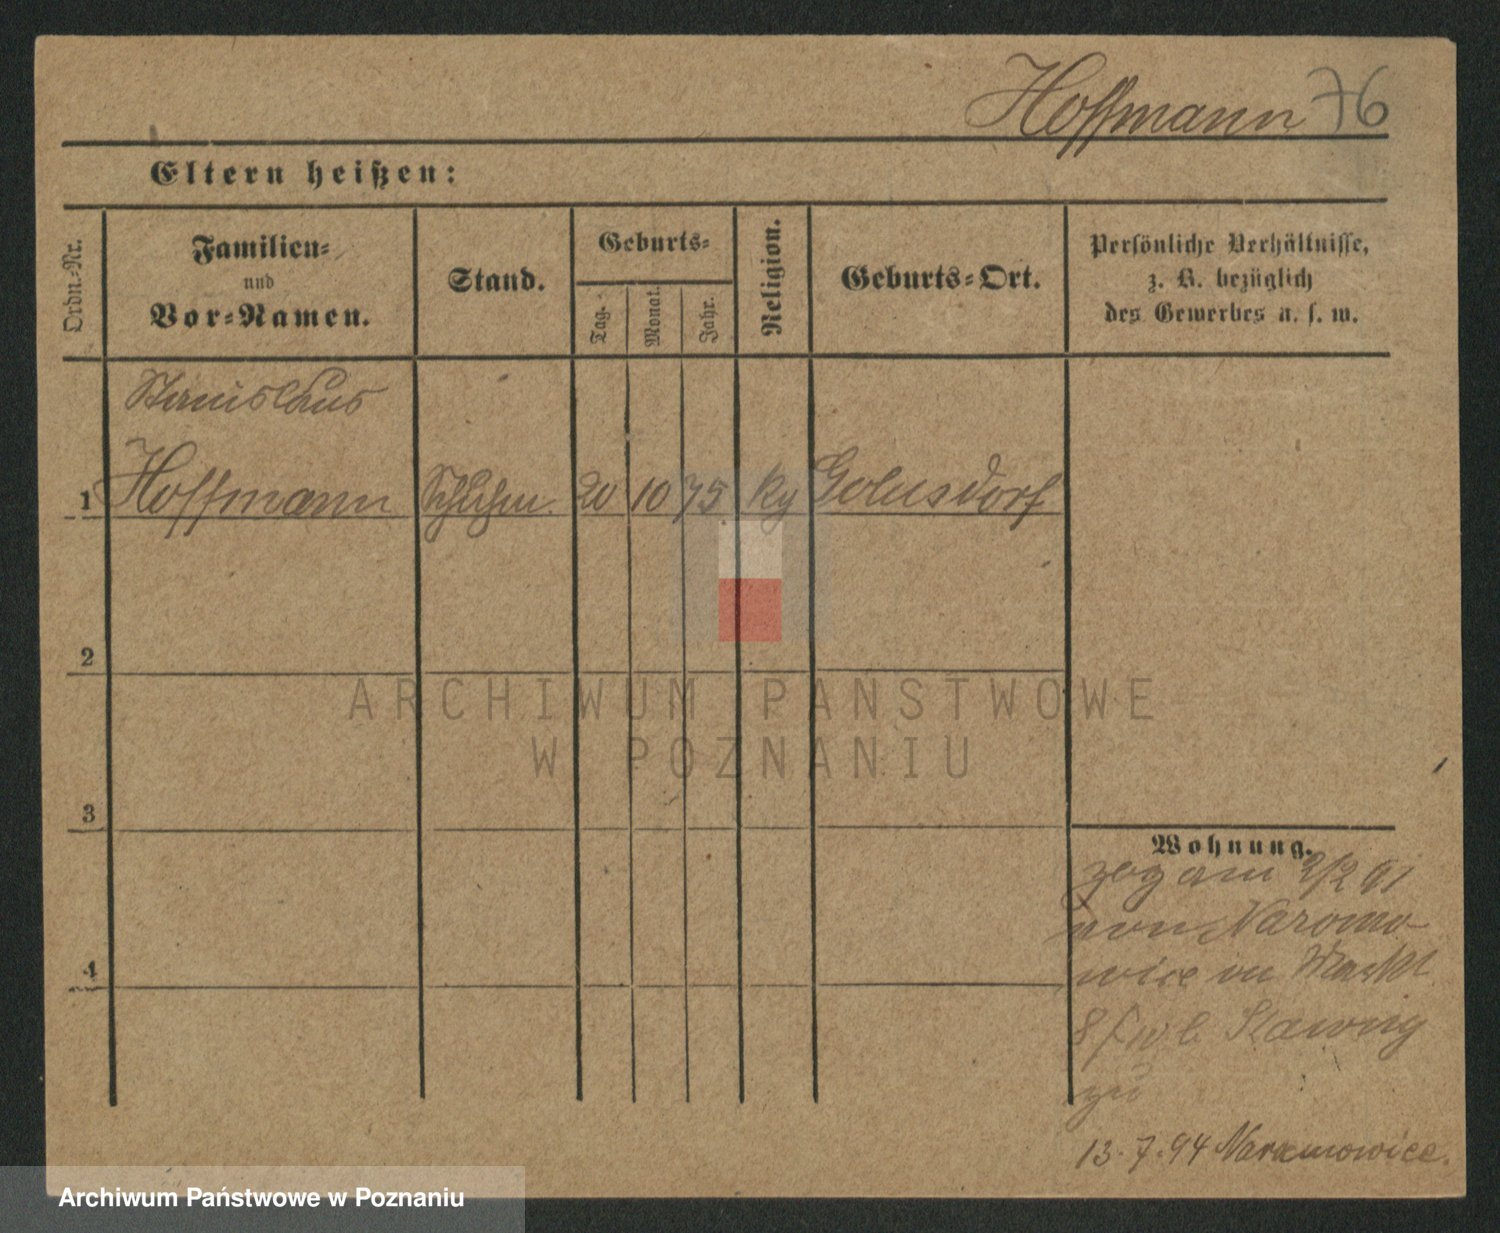 Hoffmann 76
Eltern heißen:
Ordn.-Nr.
Familien-
und
Vor-Namen.
Stand.
Geburts-
Tag.
Monat.
Jahr.
Religion.
Geburts-Ort.
Persönliche Verhältnisse,
z. B. bezüglich
des Gewerbes u. s. w.
Stanislaus
1 Hoffmann 20 10 75 kg
2
3
4
Wohnung.
zog am 2/2 91
von Naromo
wice
zu
13.7.94 Naramowice.
ARCHIWUM PAŃSTWOWE
W POZNANIU
Archiwum Państwowe w Poznaniu